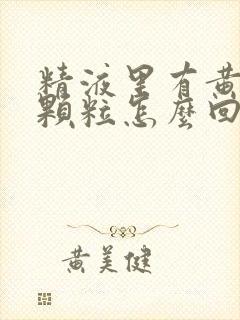 精液里有黃
顆粒怎麼回
黄美健